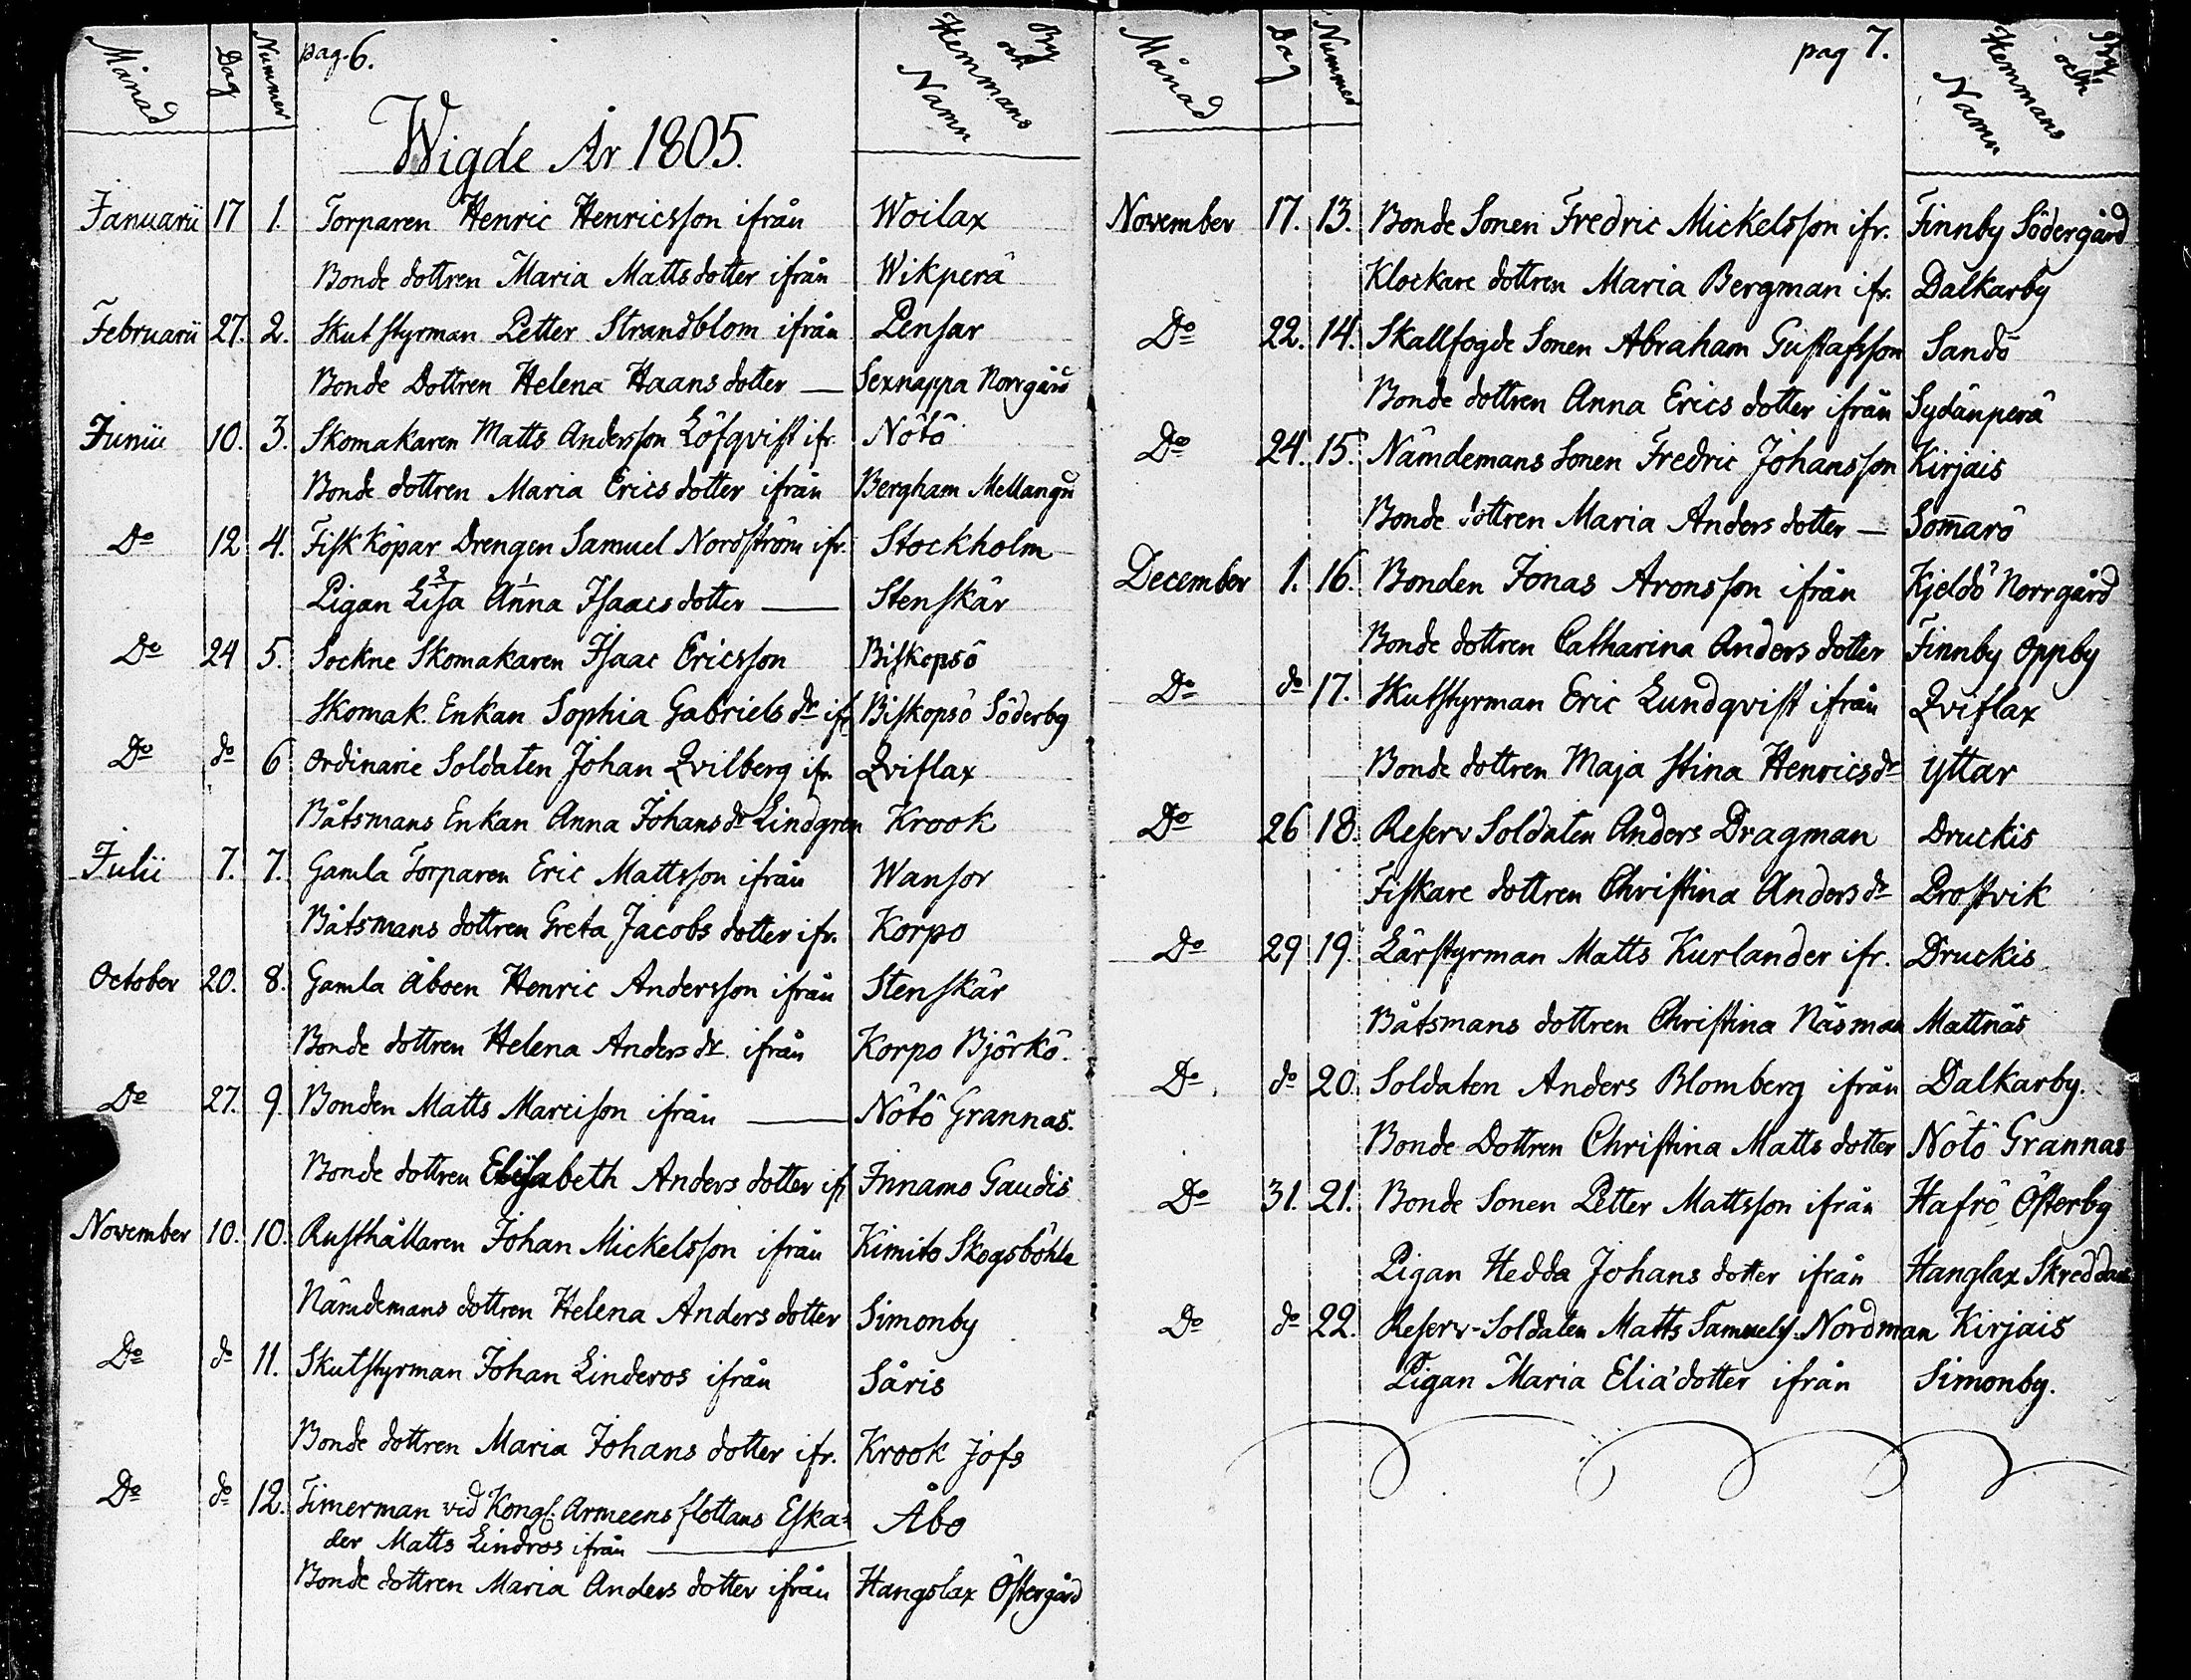 Månad Dag Nummer pag. 6. By och Hemmans Namn
Wigde År 1805.
Januarii 17 1. Torparen Henric Henricsson ifrån Woilax
Bonde dottren Maria Matts dotter ifrån Wikperä
Februarii 27. 2. Skutstyrman Petter Strandblom ifrån Pensar
Bonde Dottren Helena Haans dotter — Sexnappa Norrgård
Junii 10. 3. Skomakaren Matts Andersson Löfqvist ifr. Nötö
Bonde dottren Maria Erics dotter ifrån Bergham Mellangd
Do 12 4. Fisk Köpar Drengen Samuel Nordström ifr. Stockholm
Pigan Lisa Anna Isaacs dotter — Stenskär
Do 24 5. Sockne Skomakaren Isaac Ericsson Biskopsö
Skomak. Enkan Sophia Gabriels dr ifr Biskopsö Söderby
Do do 6 Ordinarie Soldaten Johan Qvilberg ifr. Qviflax
Båtsmans Enkan Anna Johans dr Lindgren Krook
Julii 7. 7. Gamla Torparen Eric Mattsson ifrån Wansor
Båtsmans dottren Greta Jacobs dotter ifr. Korpo
October 20. 8. Gamla Åboen Henric Andersson ifrån Stenskär
Bonde dottren Helena Anders dr. ifrån Korpo Björkö.
Do 27. 9. Bonden Matts Marcison ifrån — Nötö Grannas.
Bonde dottren Elisabeth Anders dotter ifr Innamo Gaudis
November 10. 10. Rusthållaren Johan Mickelsson ifrån Kimito Skogsböhle
Nämdemans dottren Helena Anders dotter Simonby
Do do 11. Skutstyrman Johan Linderos ifrån Såris
Bonde dottren Maria Johans dotter ifr. Krook Jofs
Do do 12. Timerman vid Kongl. Armeens flottans Eska=
der Matts Lindros ifrån — Åbo
Bonde dottren Maria Anders dotter ifrån Hangslax Östergård
Månad Dag Nummer pag 7. By och Hemmans Namn
November 17. 13. Bonde Sonen Fredric Mickelsson ifr. Finnby Södergård
Klockare dottren Maria Bergman ifr. Dalkarby
Do 22. 14. Skallfogde Sonen Abraham Gustafsson Sandö
Bonde dottren Anna Erics dotter ifrån Sydänperä
Do 24. 15. Nämdemans Sonen Fredric Johansson Kirjais
Bonde dottren Maria Anders dotter — Som̄arö
December 1. 16. Bonden Jonas Aronsson ifrån Kjeldö Norrgård
Bonde dottren Catharina Anders dotter Finnby Oppby
Do do 17. Skutstyrman Eric Lundqvist ifrån Qviflax
Bonde dottren Maja Stina Henrics dr Yttar
Do 26 18. Reserv Soldaten Anders Dragman Druckis
Fiskare dottren Christina Anders dr Prostvik
Do 29 19. Lärstyrman Matts Kurlander ifr. Druckis
Båtsmans dottren Christina Näsman Mattnäs
Do do 20. Soldaten Anders Blomberg ifrån Dalkarby.
Bonde Dottren Christina Matts dotter Nötö Grannas
Do 31. 21. Bonde Sonen Petter Mattsson ifrån Hafrö Österby
Pigan Hedda Johans dotter ifrån Hanglax
Do do 22. Reserv-Soldaten Matts Samuels. Nordman Kirjais
Pigan Maria Elia'dotter ifrån Simonby.